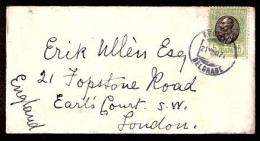 Erik Ullèn Esq
21 Topstone Road
Earl's Court S.W.
London.
England
BELGRADE
5